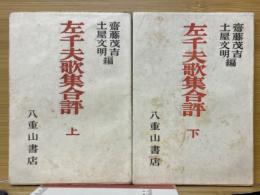 齋藤茂吉
土屋文明 編
左千夫歌集合評
上
八重山書店
齋藤茂吉
土屋文明 編
左千夫歌集合評
下
八重山書店